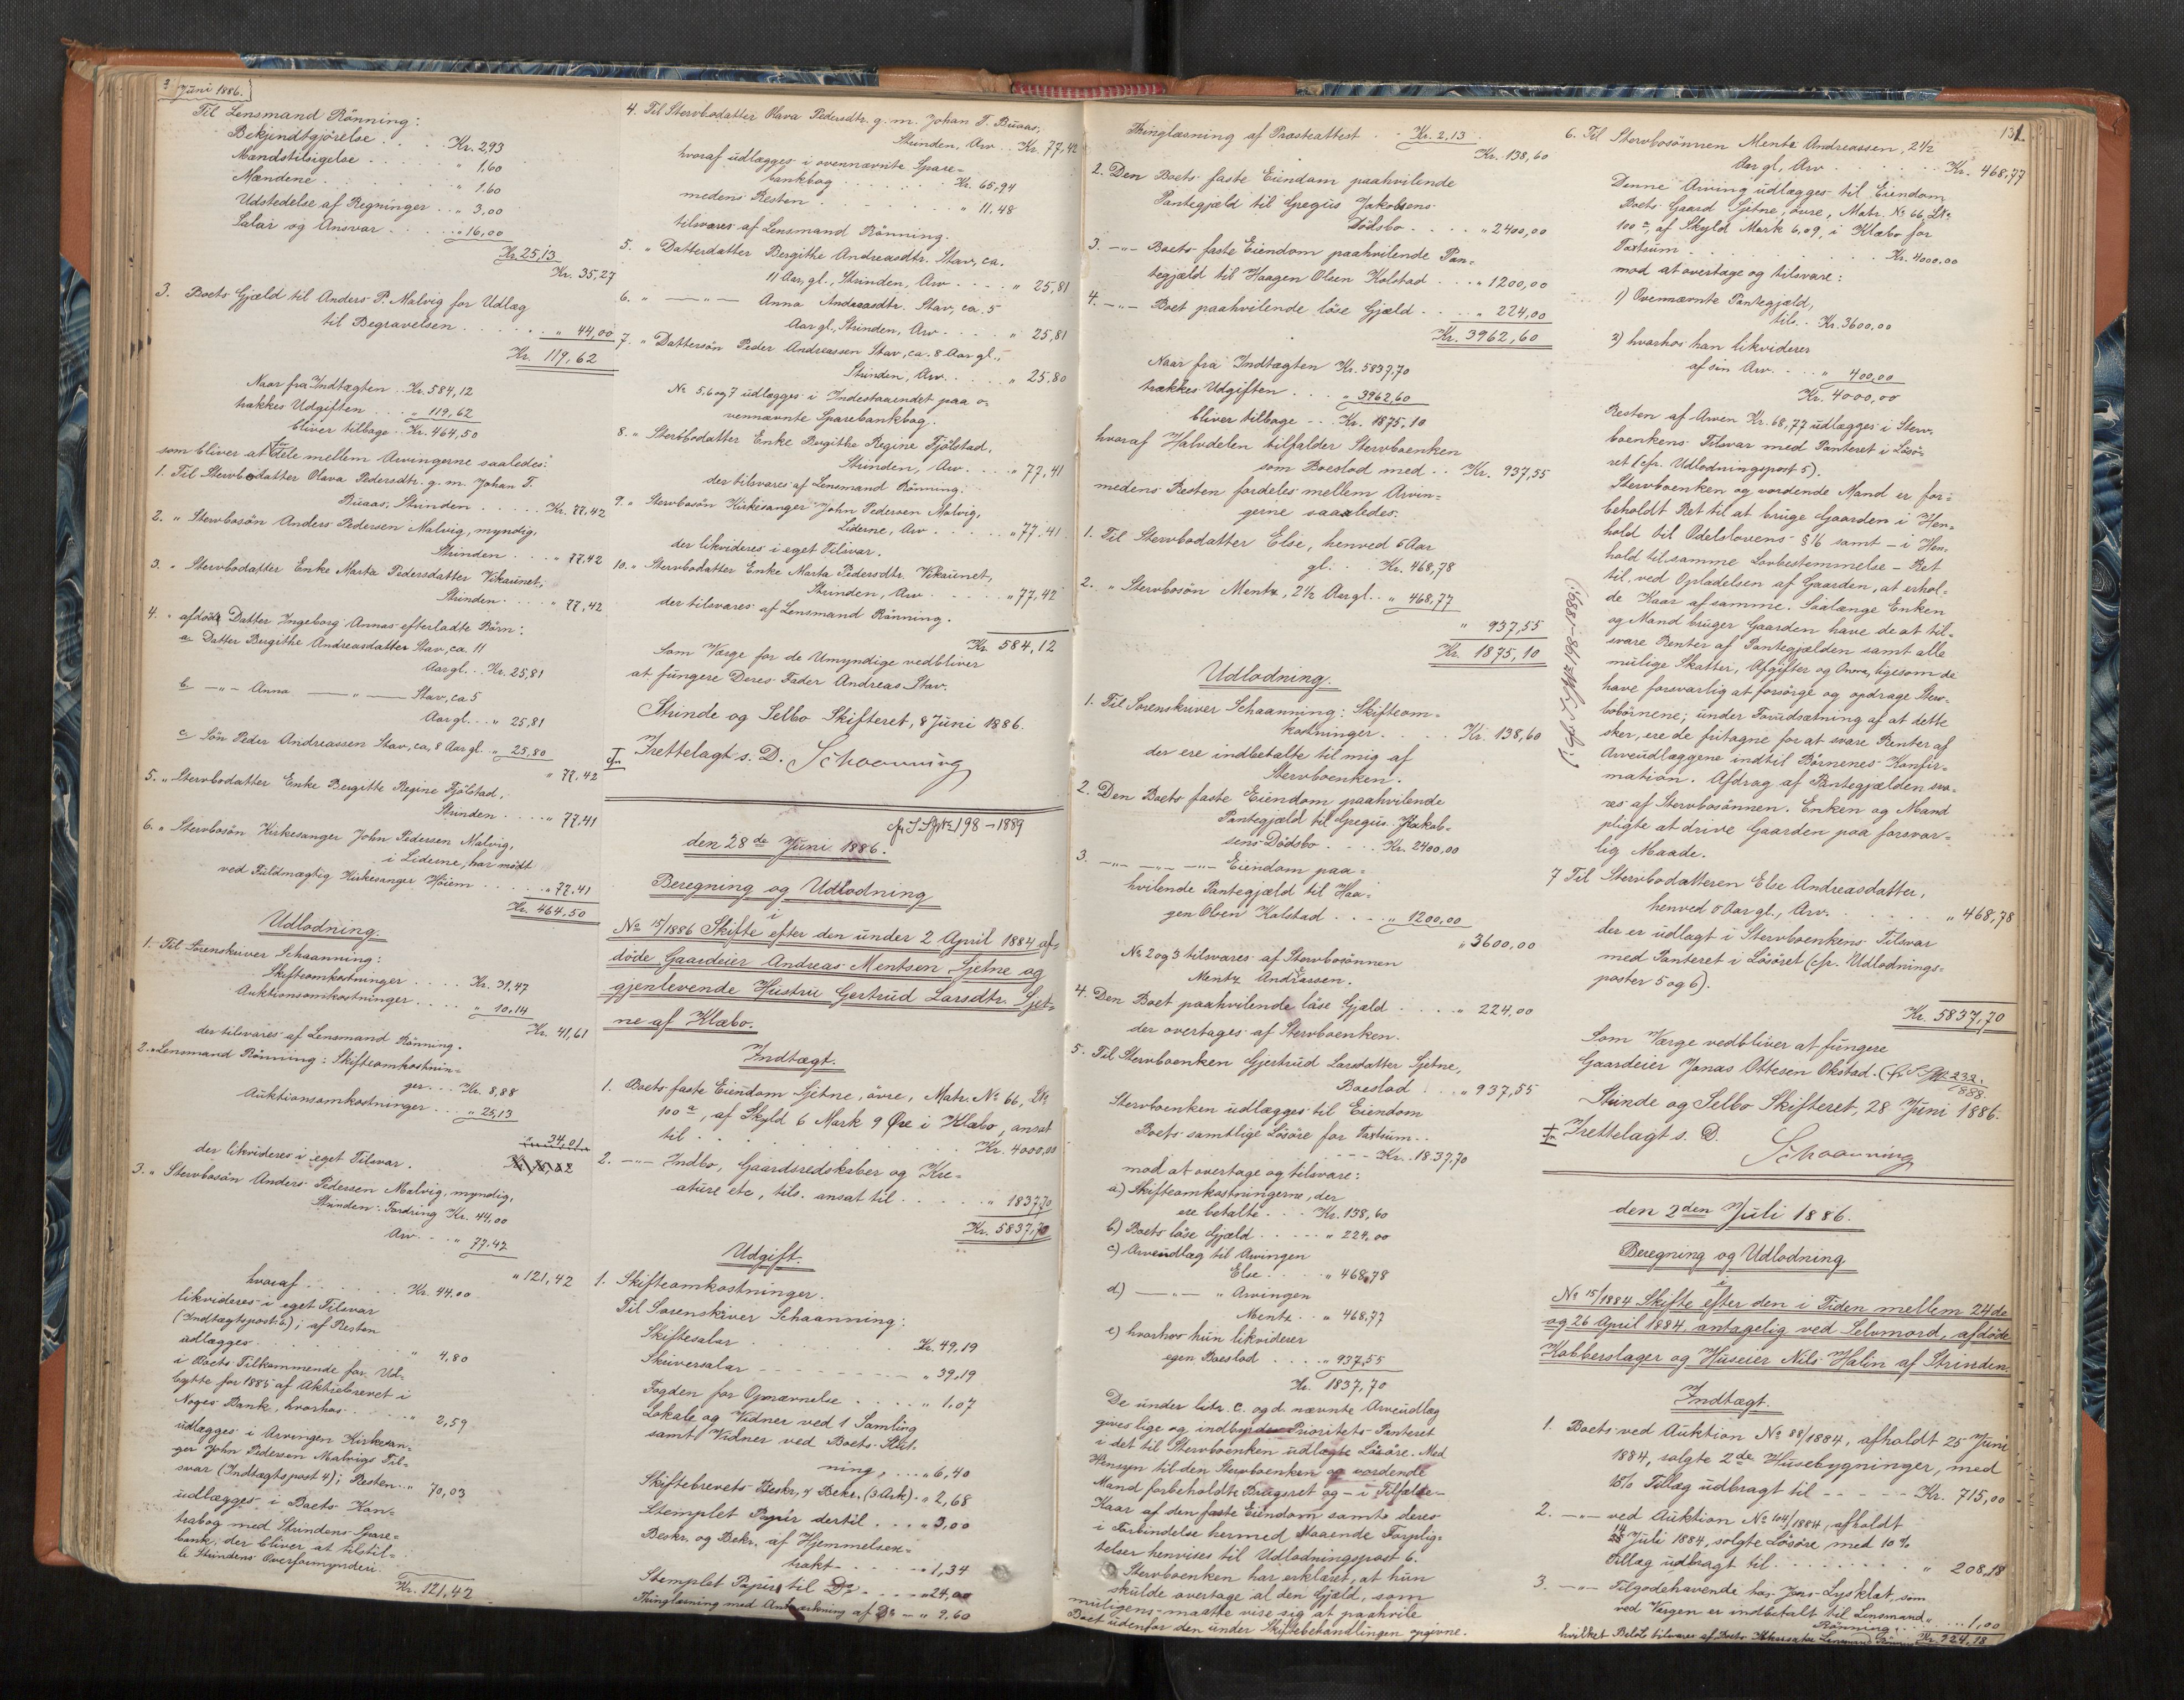 3 Juni 1886.
Til Lensmand Rönning:
Bekjendtgjörelse . . . Kr. 2,93
Mandstilsigelse . . . . " 1,60
Mændene . . . . . . " 1.60
Udstedelse af Regninger . . " 3,00
Salær og Ansvar . . . . . " 16,00
Kr. 25,13
Kr. 35,27
3. Boets Gjæld til Anders P. Malvig for Udlæg
til Begravelsen . . . . . . " 44,00
Kr. 119,62
Naar fra Indtægten . . Kr. 584,12
trækkes Udgiften . . . " 119,62
bliver tilbage . . Kr. 464,50
som bliver at dele mellem Arvingerne saaledes:
1. Til Stervbodatter Olava Pedersdtr. g. m. Johan T.
Buaas, Strinden . . . . . Kr. 77,42
2. " Stervbosön Anders Pedersen Malvig, myndig,
Strinden . . . " 77,42
3. " Stervbodatter Enke Marta Pedersdatter Vikaunet,
Strinden . . . . " 77,42
4. " afdöde Datter Ingeborg Annas efterladte Börn:
a. Datter Bergithe Andreasdatter Stav, ca. 11
Aar gl. . . Kr. 25,81
b. — " — Anna — " — Stav, ca 5
Aar gl. . . " 25,81
c. Sön Peder Andreassen Stav, ca. 8 Aar gl. . " 25,80
" 77,42
5. " Stervbodatter Enke Bergitte Regine Fjölstad,
Strinden . . . . " 77,41
6. " Stervbosön Kirkesanger John Pedersen Malvig,
i Liderne, har mödt
ved Fuldmægtig Kirkesanger Höiem . . . . . " 77.41
Kr. 464,50
Udlodning.
1. Til Sorenskriver Schaanning:
Skifteomkostninger . . . . Kr. 31,47
Auktionsomkostninger . . . . " 10,14
Kr. 41,61
der tilsvares af Lensmand Rönning.
2. " Lensmand Rönning: Skifteomkostnin-
ger . . . Kr. 8,88
Auktionsomkostninger . . . " 25,13
" 34,01
der likvideres i eget Tilsvar.
3. " Stervbosön Anders Pedersen Malvig, myndig,
Strinden: Fordring Kr. 44,00
Arv . . . " 77,42
" 121,42
hvoraf . . . . . . . Kr. 44,00
likvideres i eget Tilsvar
(Indtægtspost 6); af Resten
udlægges . . . . . . . " 4,80
i Boets Tilkommende for Ud-
bytte for 1885 af Aktiebrevet i
Norges Bank, hvorhos . . . . " 2,59
udlægges i Arvingen Kirkesan-
ger John Pedersen Malvigs Til-
svar (Indtægtspost 4); Resten . . " 70,03
udlægges i Boets Kon-
trabog med Strindens Spare-
bank, der bliver at tilstil-
le Strindens Overformynderi.
Kr. 121,42
4. Til Stervbodatter Olava Pedersdtr. g. m. Johan T. Buaas,
Strinden, Arv . . Kr. 77,42
hvoraf udlægges i ovennævnte Spare-
bankbog . . . . . . Kr. 65,94
medens Resten . . . . . " 11,48
tilsvares af Lensmand Rönning.
5. " Datterdatter Bergithe Andreasdtr. Stav, ca.
11 Aar gl., Strinden, Arv . . . . " 25,81
6. " — " — Anna Andreasdtr. Stav, ca. 5
Aar gl., Strinden, Arv . . . . " 25,81
7. " Dattersön Peder Andreassen Stav, ca. 8 Aar gl.,
Strinden, Arv . . . . " 25,80
No 5, 6 og 7 udlægges i Indestaaendet paa o-
vennævnte Sparebankbog.
8. " Stervbodatter Enke Bergithe Regine Fjölstad,
Strinden, Arv . . . . " 77,41
der tilsvares af Lensmand Rönning.
9. " Stervbosön Kirkesanger John Pedersen Malvig,
Liderne, Arv . . . . . " 77,41
der likvideres i eget Tilsvar.
10. " Stervbodatter Enke Marta Pedersdtr. Vikaunet,
Strinden, Arv . . . . . " 77,42
der tilsvares af Lensmand Rönning.
Kr. 584,12
Som Værge for de Umyndige vedbliver
at fungere Deres Fader Andreas Stav.
Strinde og Selbo Skifteret, 8 Juni 1886.
Irettelagt s. D. Schaanning
cfr. S. Spkr 198 – 1889
den 28de Juni 1886.
Beregning og Udlodning
i
No 15/1886 Skifte efter den under 2 April 1884 af-
döde Gaardeier Andreas Mentsen Sjetne og
gjenlevende Hustru Gertrud Larsdtr. Sjet-
ne af Klæbo.
Indtægt.
1. Boets faste Eiendom Sjetne, övre, Matr. No 66, LNo
100 a, af Skyld 6 Mark 9 Øre i Klæbo, ansat
til . . . . . . . Kr. 4000,00
2. — " — Indbo, Gaardsredskaber og Kre-
ature etc, tils. ansat til . . . . . " 1837,70
Kr. 5837,70
Udgift.
1. Skifteomkostninger.
Til Sorenskriver Schaanning:
Skiftesalær . . . . . . . Kr. 49,19
Skriversalær . . . . . . " 39,19
Fogden for Opnævnelse . . . . . " 1,07
Lokale og Vidner ved 1 Samling
samt Vidner ved Boets Slut-
ning, . . . " 6,40
Skiftebrevets Beskr. & Bekr. (3 Ark) . " 2,68
Stemplet Papir dertil . . . . " 3,00
Beskr. og Bekr. af Hjemmelsex-
trakt . . . . . " 1,34
Stemplet Papir til Do . . . . " 24,00
Thinglæsning med Anmærkning af Do — " 9,60
Thinglæsning af Præsteattest . . Kr. 2,13
Kr. 138,60
2. Den Boets faste Eiendom paahvilende
Pantegjæld til Gregus Jakobsens
Dödsbo . . . . " 2400,00
3. — " — Boets faste Eiendom paahvilende Pan-
tegjæld til Haagen Olsen Kolstad . . . " 1200,00
4. — " — Boet paahvilende löse Gjæld . . . . " 224,00
Kr. 3962,60
Naar fra Indtægten Kr. 5837,70
trækkes Udgiften . . . " 3962,60
bliver tilbage . . Kr. 1875,10
hvoraf Halvdelen tilfalder Stervboenken
som Boeslod med . . Kr. 937,55
medens Resten fordeles mellem Arvin-
gerne saaledes:
1. Til Stervbodatter Else, henved 5 Aar
gl. . . Kr. 468,78
2. " Stervbosön Mentz, 2 1/2 Aar gl. . " 468,77
" 937,55
Kr. 1875,10
Udlodning.
1. Til Sorenskriver Schaanning: Skifteom-
kostninger . . . . . Kr. 138,60
der ere indbetalte til mig af
Stervboenken.
2. Den Boets faste Eiendom paahvilende
Pantegjæld til Gregus Jakob-
sens Dödsbo . . . . Kr. 2400,00
3. — " — — " — — " — Eiendom paa-
hvilende Pantegjæld til Haa-
gen Olsen Kolstad . . . . " 1200,00
" 3600,00
No 2 og 3 tilsvares af Stervbosönnen
Mentz Andreassen.
4. Den Boet paahvilende löse Gjæld . . . . " 224,00
der overtages af Stervboenken.
5. Til Stervboenken Gjertrud Larsdatter Sjetne,
Boeslod . . . " 937,55
Stervboenken udlægges til Eiendom
Boets samtlige Lösöre for Taxtum . .
. . . Kr. 1837,70
mod at overtage og tilsvare:
a) Skifteomkostningerne, der
ere betalte . . . Kr. 138,60
b) Boets löse Gjæld . . . . " 224,00
c) Arveudlæg til Arvingen
Else . . . . " 468,78
d) — " — " Arvingen
Mentz . . " 468,77
e) hvorhos hun likviderer
egen Boeslod . . . . " 937,55
Kr. 1837,70
De under litr. c. og d. nævnte Arveudlæg
gives lige og indbyrdes Prioritets Panteret
i det til Stervboenken udlagte Lösöre. Med
Hensyn til den Stervboenken og vordende
Mand forbeholdte Brugsret og – i Tilfælde –
Kaar af den faste Eiendom samt deres
i Forbindelse hermed staaende Forplig-
telser henvises til Udlodningspost 6.
Stervboenken har erklæret, at hun
skulde overtage al den Gjæld, som
muligens maatte vise sig at paahvile
Boet udenfor den under Skiftebehandlingen opgivne.
131.
6. Til Stervbosönnen Mentz Andreassen, 2 1/2
Aar gl., Arv . . . . . . Kr. 468,77
Denne Arving udlægges til Eiendom
Boets Gaard Sjetne, övre, Matr. No 66, LNo
100 a, af Skyld Mark 6,09, i Klæbo for
Taxtum . . . . . . . Kr. 4000,00
mod at overtage og tilsvare:
1) Ovennævnte Pantegjæld,
tils. . Kr. 3600,00
2) hvorhos han likviderer
af sin Arv . . . " 400,00
Kr. 4000,00
Resten af Arven Kr. 68,77 udlægges i Sterv-
boenkens Tilsvar med Panteret i Lösö-
ret (cfr. Udlodningspost 5).
Stervboenken og vordende Mand er for-
beholdt Ret til at bruge Gaarden i Hen-
hold til Odelslovens § 16 samt – i Hen-
hold til samme Lovbestemmelse – Ret
til, ved Opladelsen af Gaarden, at erhol-
de Kaar af samme. Saalænge Enken
og Mand bruger Gaarden have de at til-
svare Renter af Pantegjælden samt alle
mulige Skatter, Afgifter og Onera, ligesom de
have forsvarlig at forsörge og opdrage Sterv-
bobörnene; under Forudsætning af at dette
sker, ere de fritagne for at svare Renter af
Arveudlæggene indtil Börnenes Konfir-
mation. Afdrag af Pantegjælden sva-
res af Stervbosönnen. Enken og Mand
pligte at drive Gaarden paa forsvar-
lig Maade.
7 Til Stervbodatteren Else Andreasdatter,
henved 5 Aar gl., Arv. . . . . . . " 468,78
der er udlagt i Stervboenkens Tilsvar
med Panteret i Lösöret (cfr. Udlodnings-
poster 5 og 6).
Kr. 5837,70
Som Værge vedbliver at fungere
Gaardeier Jonas Ottesen Okstad. 232/1888.
Strinde og Selbo Skifteret, 28 Juni 1886.
Irettelagt s. D.
Schaanning
den 2den Juli 1886.
Beregning og Udlodning
i
No 15/1884 Skifte efter den i Tiden mellem 24de
og 26 April 1884, antagelig ved Selvmord, afdöde
Kobberslager og Huseier Nils Halin af Strinden.
Indtægt.
1. Boets ved Auktion No 88/1884, afholdt 25 Juni
1884, solgte 2de Husebygninger, med
10% Tillæg udbragt til . . . . . Kr. 715,00
2. — " — ved Auktion No 104/1884, afholdt
14 Juli 1884, solgte Lösöre med 10%
Tillæg udbragt til . . . . . . . " 208,18
3. — " — Tilgodehavende hos Jens Lysklæt, som
ved Værgen er indbetalt til Lensmand
Rönning . . . " 1,00
Kr. 924,18
hvilket Belöb tilvares af Boets